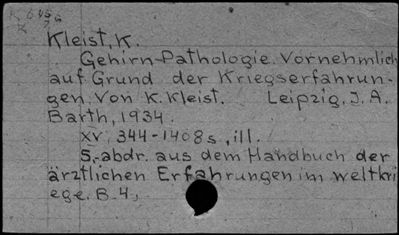 Kleist, K.
Gehirn-Pathologie. Vornehmlich
auf Grund der Kriegserfahrun-
gen. Von K. Kleist. Leipzig, J. A.
Barth, 1934.
XV, 344-1408 s, ill.
S.-abdr. aus dem Handbuch der
ärztlichen Erfahrungen im Weltkri
ege. B. 4,